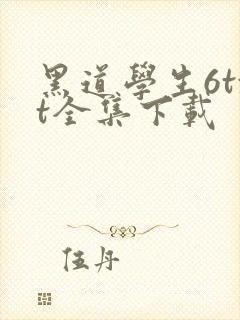 黑道學生6tx
t全集下載
伍丹